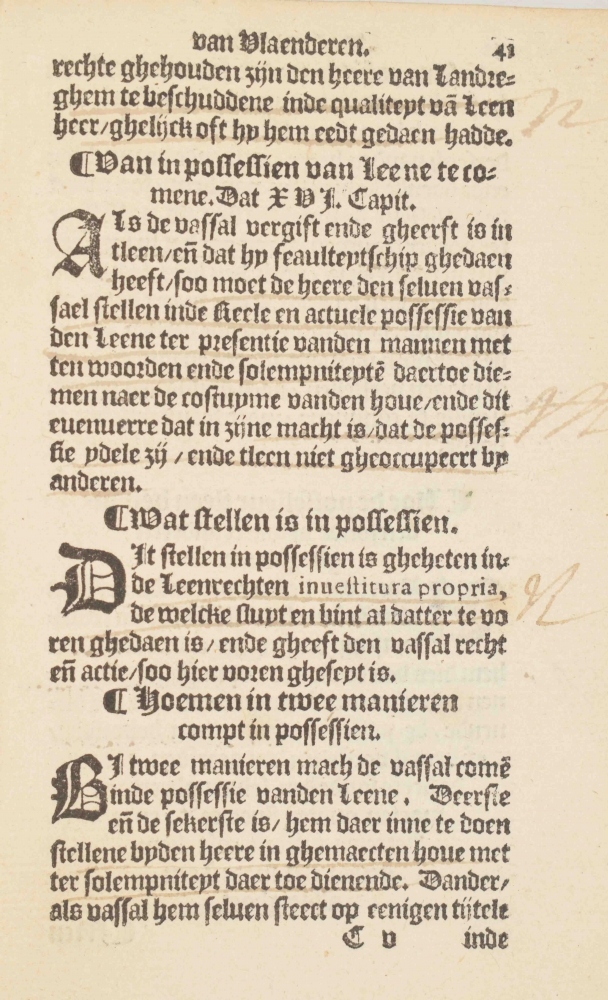 van Vlaenderen. 41
rechte ghehouden zijn den heere van Landre-
ghem te beschuddene inde qualiteyt vā Leen
heer/ghelijck oft hy hem eedt gedaen hadde.
¶Van in possessien van Leene te co-
mene. Dat XVJ. Capit.
Als de vassal vergift ende gheerft is in
tleen/en̄ dat hy feaulteytschip ghedaen
heeft/soo moet de heere den seluen vas-
sael stellen inde Reele en actuele possessie van
den Leene ter presentie vanden mannen met
ten woorden ende solempniteytē daertoe die-
men naer de costuyme vanden houe/ende dit
euenverre dat in zijne macht is/dat de posses-
sie ydele zij / ende tleen niet gheoccupeert by
anderen.
¶Wat stellen is in possessien.
Dit stellen in possessien is gheheten in-
de Leenrechten inuestitura propria,
de welcke sluyt en bint al datter te vo
ren ghedaen is / ende gheeft den vassal recht
en̄ actie/soo hier voren gheseyt is.
¶ Hoemen in twee manieren
compt in possessien.
BJ twee manieren mach de vassal comē
inde possessie vanden Leene. Deerste
en̄ de sekerste is/ hem daer inne te doen
stellene byden heere in ghemaecten houe met
ter solempniteyt daer toe dienende. Dander/
als vassal hem seluen steect op eenigen tijtele
C v inde